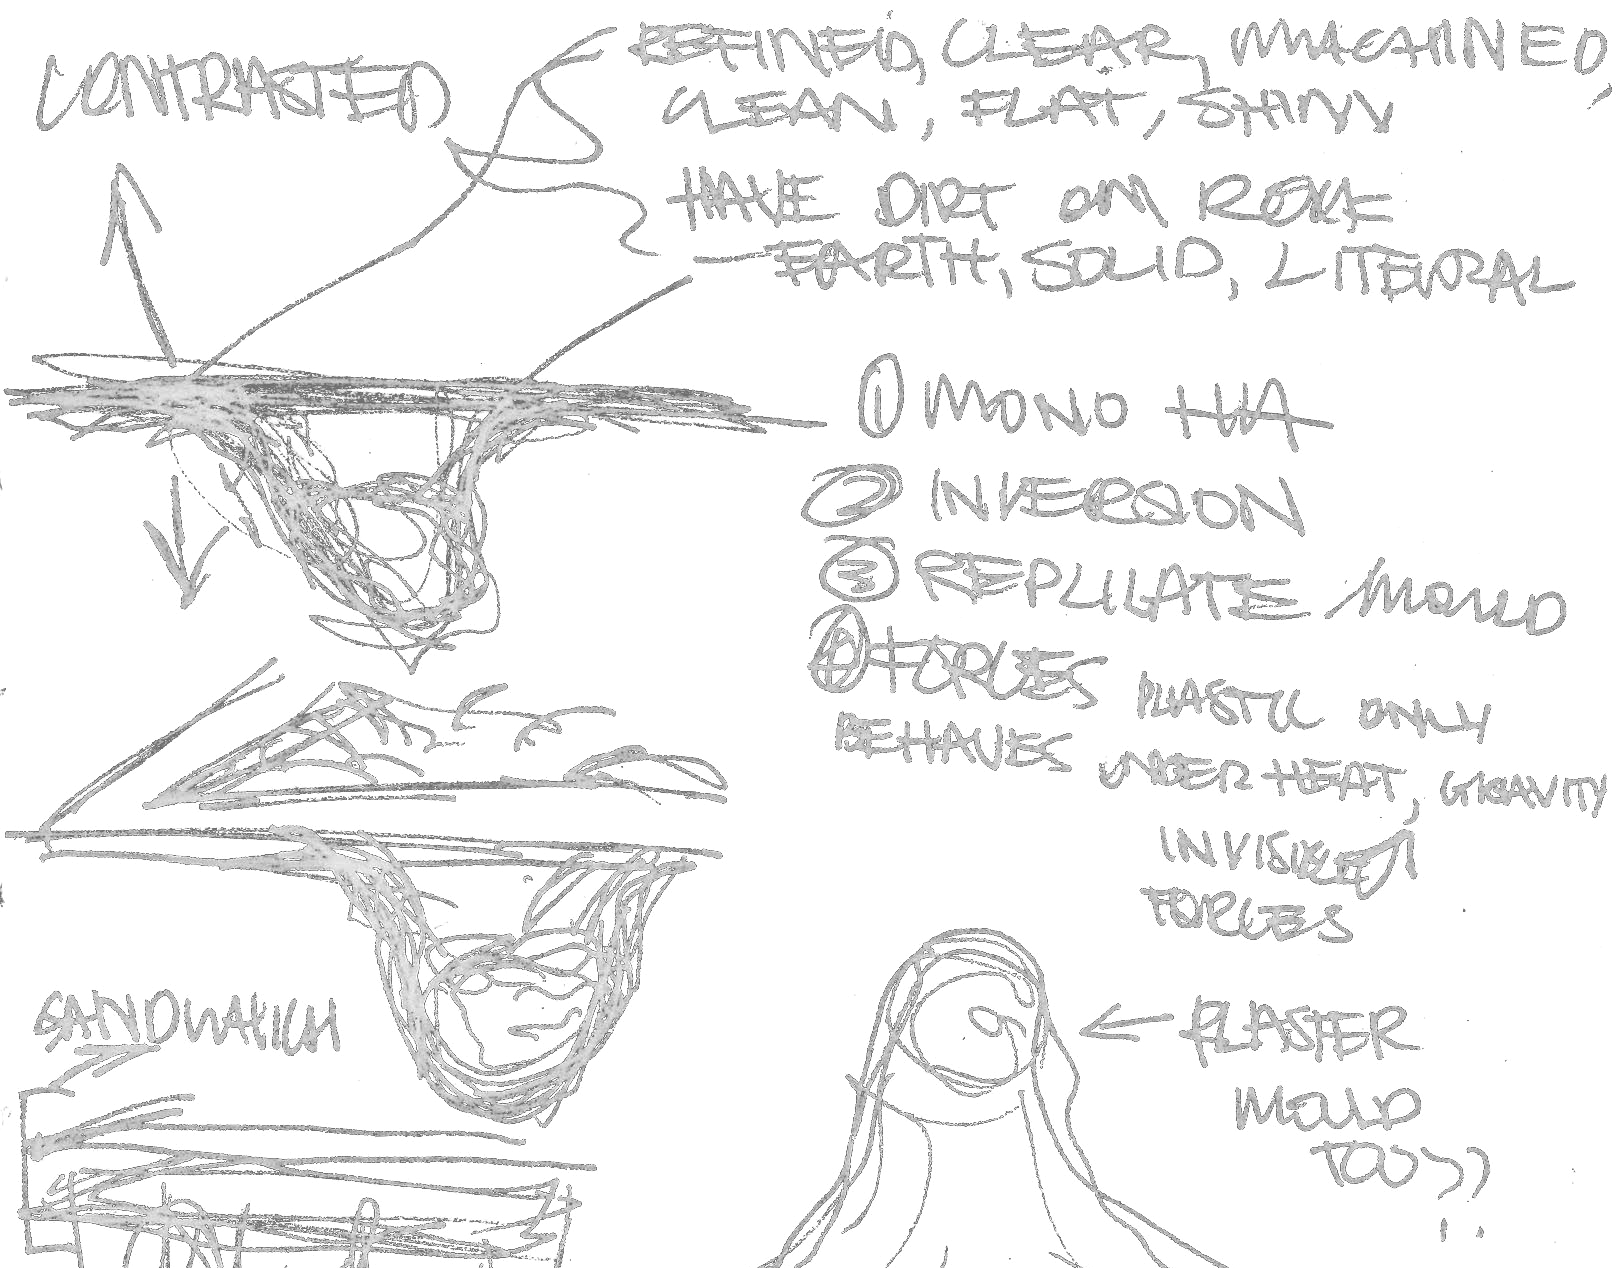 CONTRASTED
REFINED, CLEAR, MACHINED,
CLEAN, FLAT, SHINY
HAVE DIRT OM ROCK
— EARTH, SOLID, LITERAL
① MONO HA
② INVERSION
③ REPLICATE MOULD
④ FORCES
BEHAVES
PLASTIC ONLY
UNDER HEAT, GRAVITY
INVISIBLE
FORCES
SANDWHICH
← PLASTER
MOULD
TOO??